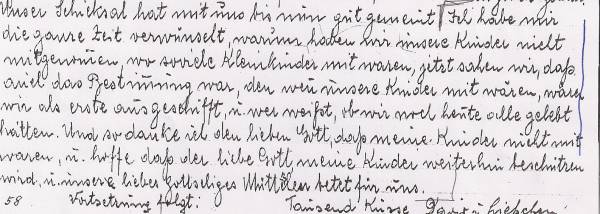 Unser Schicksal hat mit uns bis nun gut gemeint! Ich habe mir
die ganze Zeit verwünscht, warum haben wir unsere Kinder nicht
mitgenomen, wo soviele Kleinkinder mit waren, jetzt sahen wir, daß
auch das Bestimung war, den wen unsere Kinder mit wären, wären
wir als erste ausgeschifft, u. wer weißt, ob wir noch heute alle gelebt
hätten. Und so danke ich den lieben Gott, daß meine Kinder nicht mit
waren, u. hoffe daß der liebe Gott, meine Kinder weiterhin beschützen
wird, u. unsere liebes Gottseliges betet für uns.
58 Vortsetzung folgt! Tausend Küsse